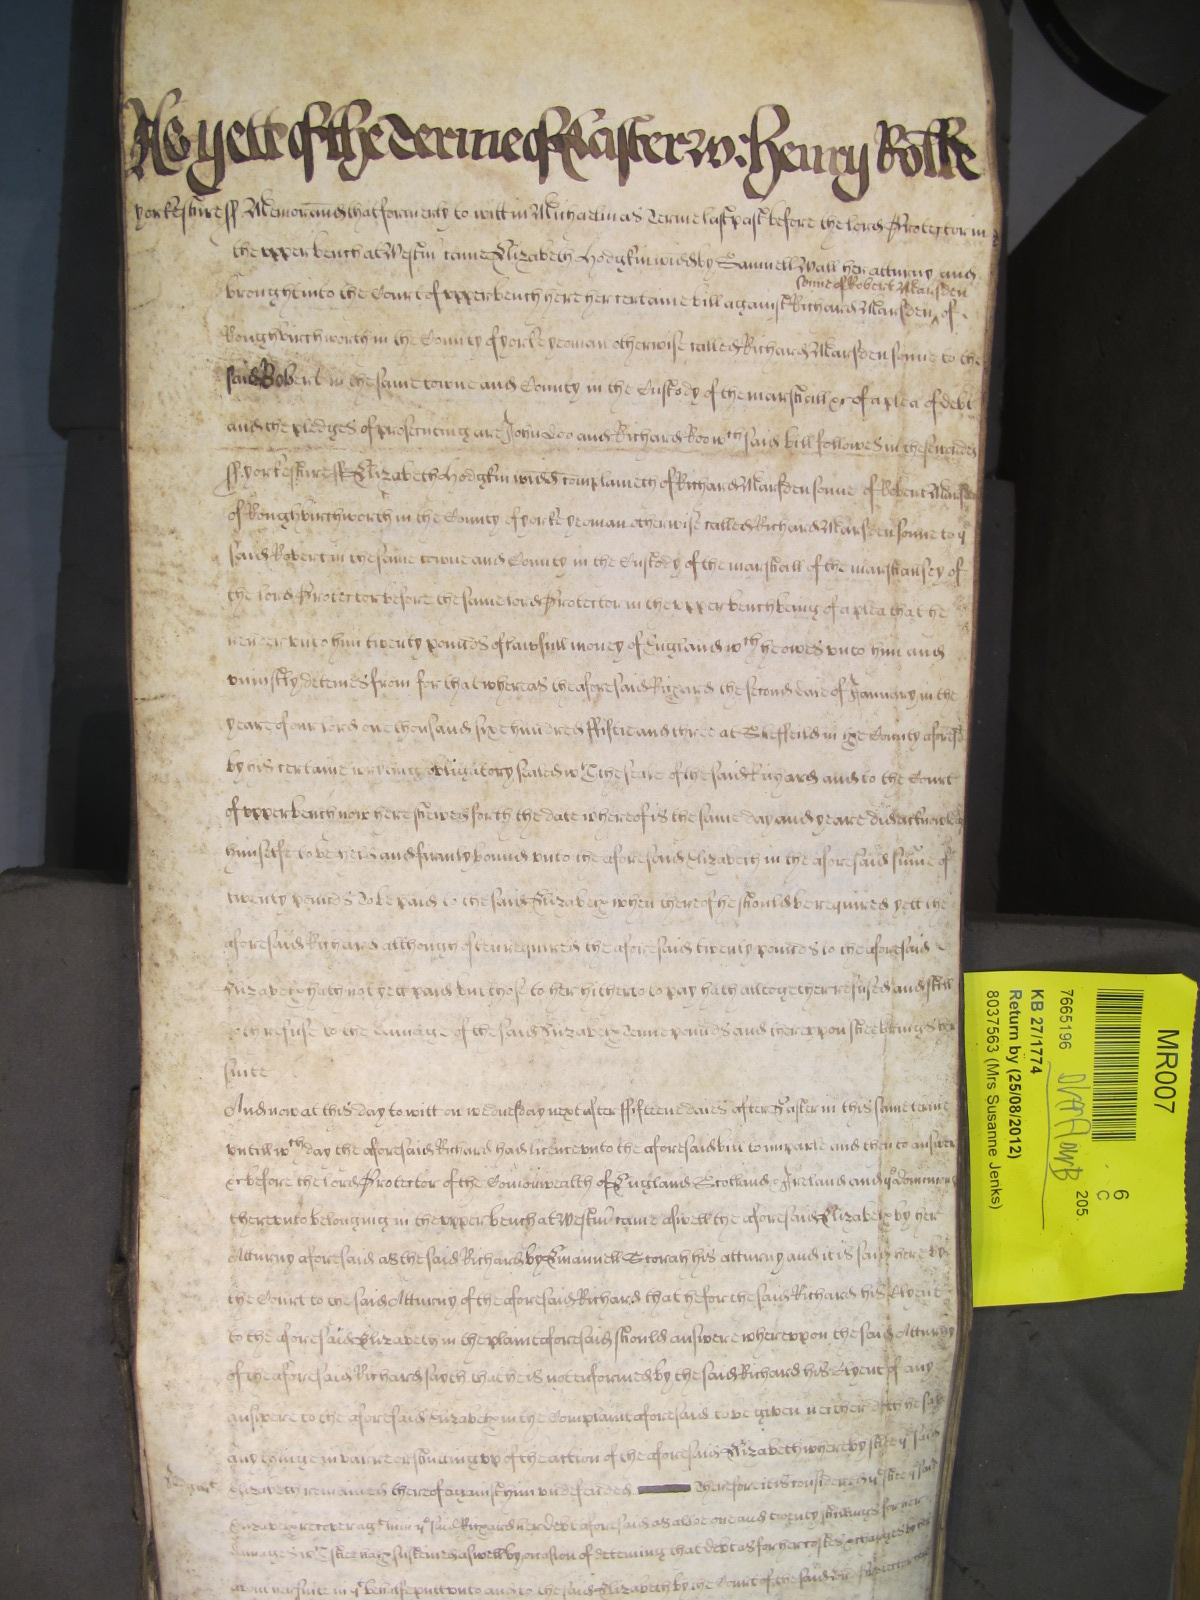 As yett of the Terme of Easter w: Henry Rolle
Yorkeshire ss Memorand that formerly to witt in Michaelmas Terme last past before the Lord Protector in
the upper bench at Westm came Elizabeth Hodgkin widd by Samuell Wall her atturny and
sonne of Robert Marsden
brought into the Court of upper bench here her certaine bill against Richard Marsden ^ of
Roughbirchworth in the County of yorke yeoman otherwise called Richard Marsden sonne to the
said Robert in the same towne and County in the Custody of the marshall &c of a plea of debt
and the pledges of prosecuting are John Doo and Richard Roo wch said bill followes in these wordes
ss yorkeshire ss Elizabeth Hodgkin widd complaineth of Richard Marsden sonne of Robert Marsden
of Roughbirchworth in the County of yorke yeoman otherwise called Richard Marsden sonne to ye
said Robert in the same towne and County in the Custody of the marshall of the marshalsey of
the Lord Protector before the same Lord Protector in the upper bench being of a plea that he
render unto him twenty pounds of lawfull money of England wch he owes unto him and
uniustly deteines from for that whereas the aforesaid Richard the second daie of January in the
yeare of our Lord one thousand six hundred ffiftie and three at Sheffeild in the County aforesd
by his certaine wryting obligatory sealed wth the seale of the said Richard and to the Court
of upper bench now here shewed forth the date whereof is the same day and yeare did acknowledg
himselfe to be held and firmly bound unto the aforesaid Elizabeth in the aforesaid sume of
twenty pounds To be paid to the said Elizabeth when thereof he should be required yett the
aforesaid Richard although often required the aforesaid twenty pounds to the aforesaid
Elizabeth hath not yett paid but those to her hitherto to pay hath alltogether refused and still
doth refuse to the damage of the said Elizabeth Tenne pounds and thereupon shee brings her
suite
And now at this day to witt on wednesday next after ffifteene daies after Easter in this same terme
untill wch day the aforesaid Richard had licence unto the aforesaid bill to imparle and then to answer
&c before the Lord Protector of the Comonwealth of England Scotland & Ireland and ye dominions
thereunto belonging in the upper bench at Westm came aswell the aforesaid Elizabeth by her
Atturny aforesaid as the said Richard by Emanuell Storah his atturny and it is said here by
the Court to the said Atturny of the aforesaid Richard that he for the said Richard his Clyent
to the aforesaid Elizabeth in the plaint aforesaid should answere whereupon the said Atturny
of the aforesaid Richard sayth that he is not informed by the said Richard his Clyent of any
answere to the aforesaid Elizabeth in the Complaint aforesaid to be given neither doth he say
any thinge in barre or stading up of the action of the aforesaid Elizabeth whereby the said
Elizabeth remaines thereof against him undefended Therefore it is considered yt shee ye said
Elizabeth recover agt him ye said Richard her debt aforesaid as also one and twenty shillings for her
damages wch shee hath susteined aswell by occasion of deteining that debt as for her costes & charges by her
about her suite in yt behalfe putt unto and to the said Elizabeth by the Court of the said Lord Protector
MR007
6
C
205.
7665196
KB 27/1774
Return by (25/08/2012)
8037563 (Mrs Susanne Jenks)